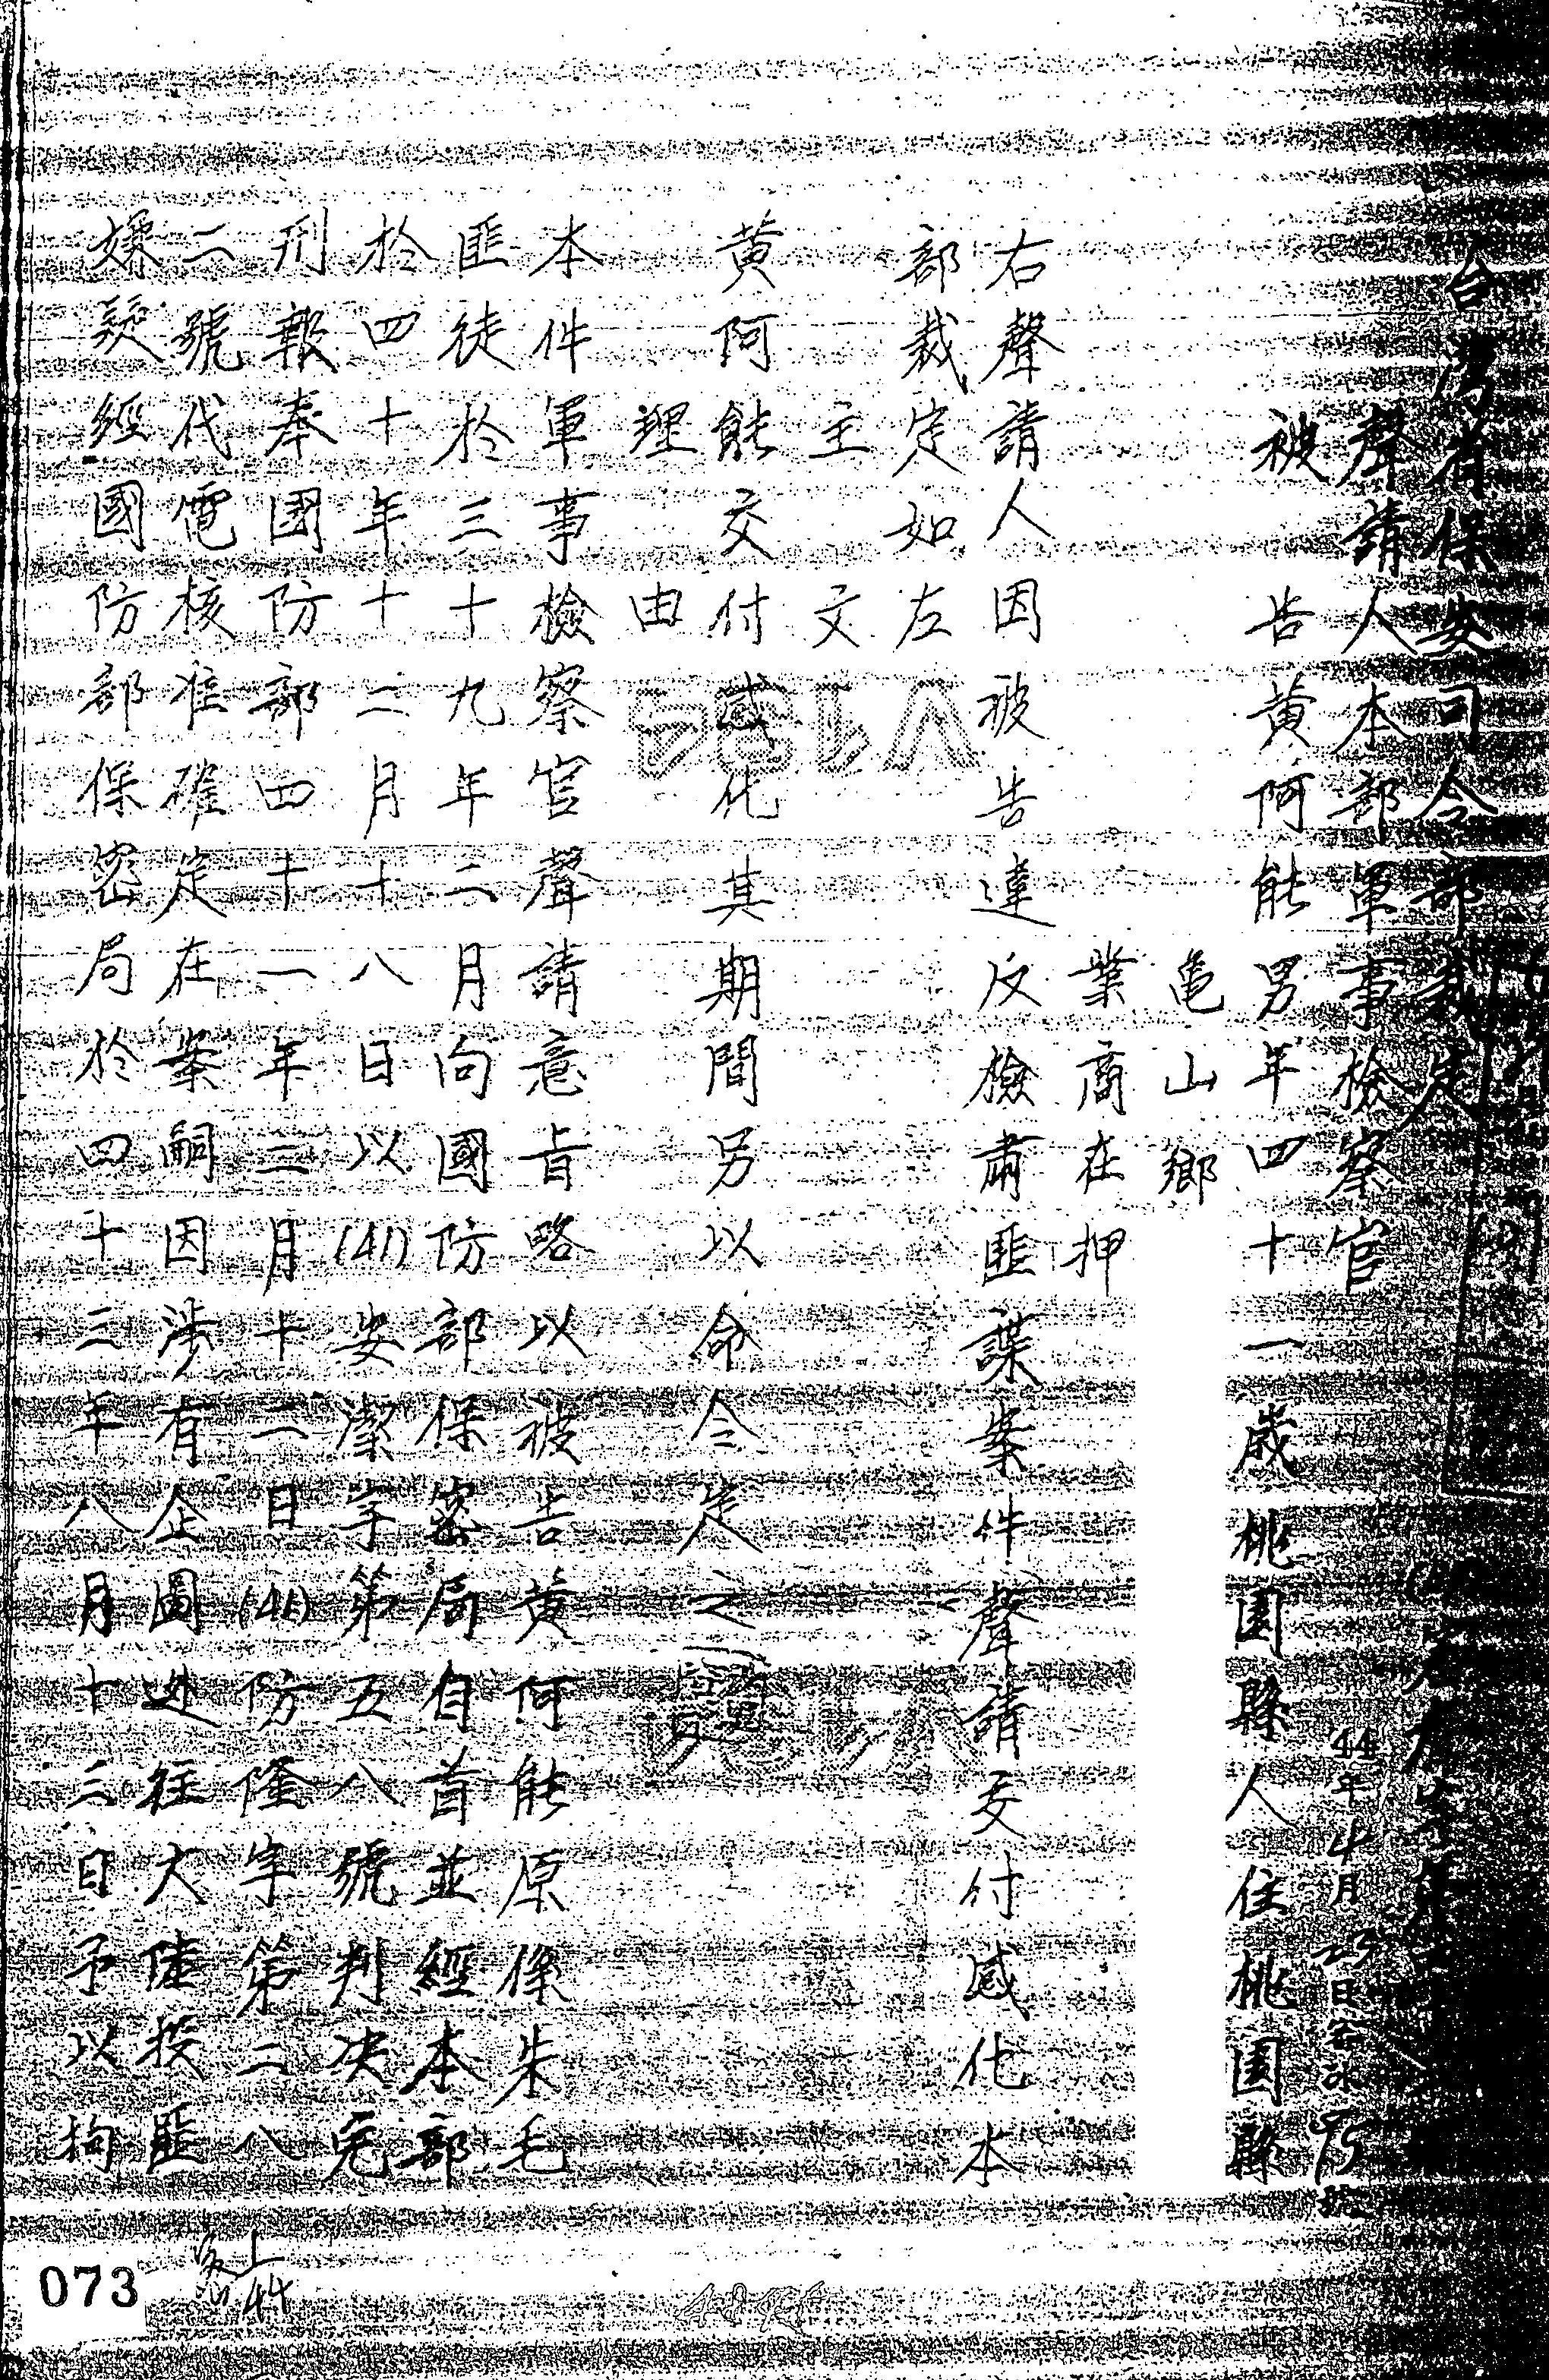 台灣省保安司令部裁定
44年4月23日
聲請人本部軍事檢察官
被告黃阿能男年四十一歲桃園縣人住桃園縣
龜山鄉
業商在押
右聲請人因被告違反檢肅匪諜案件聲請交付感化本
部裁定如左
主文
黃阿能交付感化其期間另以命令定之
理由
本件軍事檢察官聲請意旨略以被告黃阿能原係朱毛
匪徒於三十九年二月向國防部保密局自首並經本部
於四十年十二月十八日以(41)安潔字第五八號判決免
刑報奉國防部四十一年三月十二日(41)防隆字第二八
二號代電核准確定在案嗣因涉有企圖逃往大陸投匪
嫌疑經國防部保密局於四十三年八月十三日予以拘
073